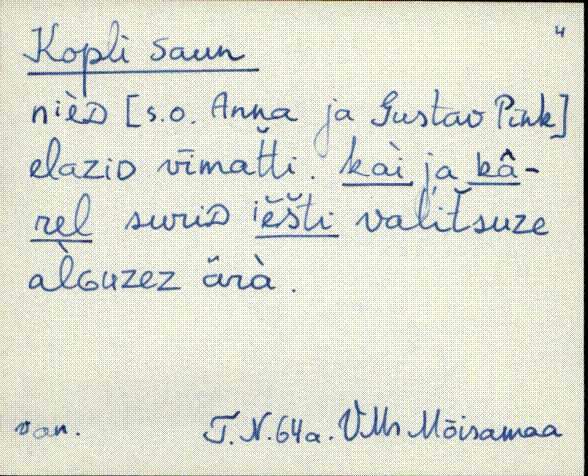 4
Kopli saun
nièᴅ [s.o. Anna ja Gustav Pink]
elaziᴅ vīmat̆ti. kài ja kâ-
rel suriᴅ iĕšti valit̆suze
àlGuzez ärà.
van. T.N. 64a. VMr Mõisamaa